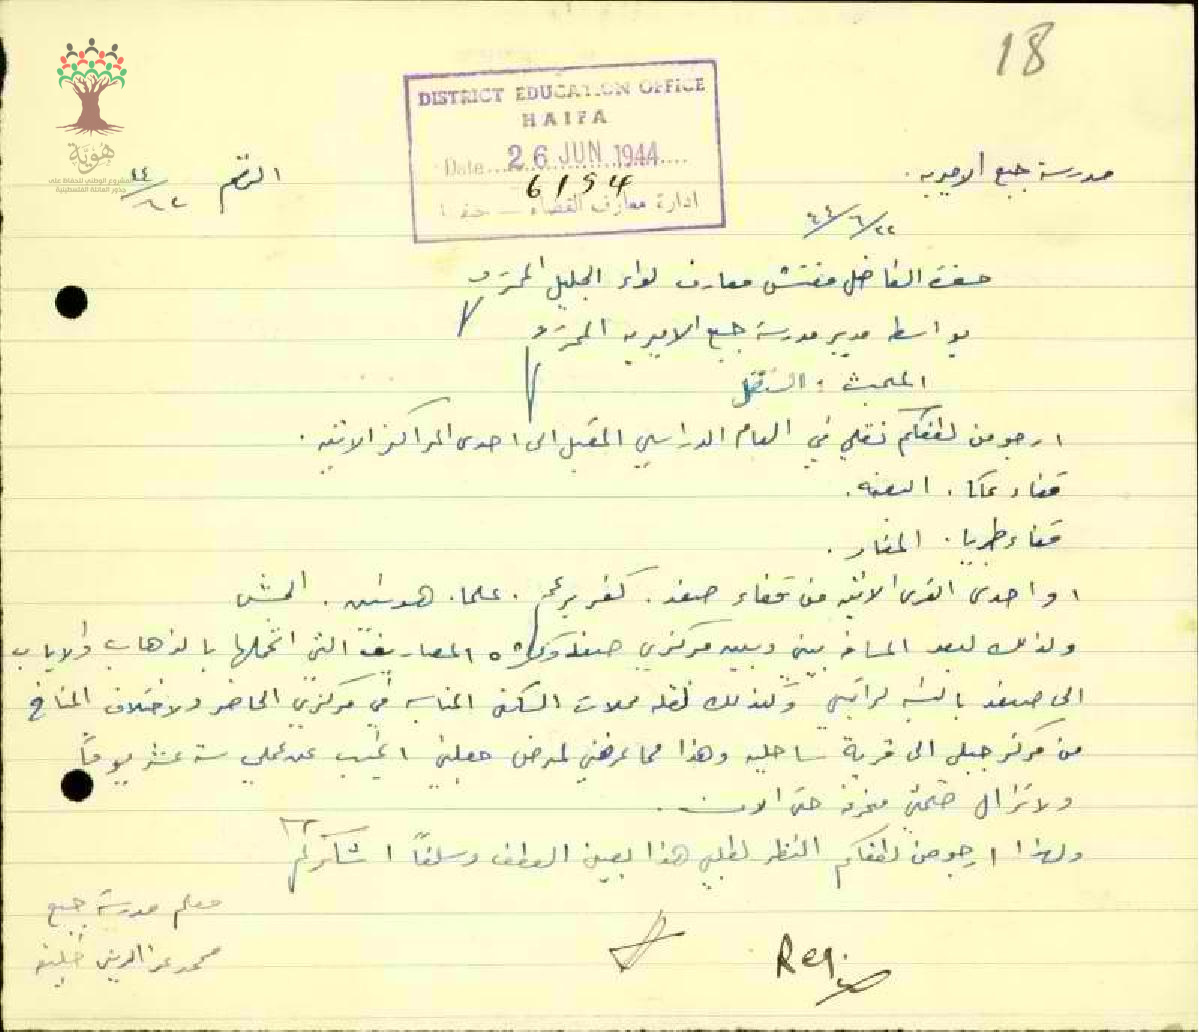 18
هوية
المشروع الوطني للحفاظ على
جذور العائلة الفلسطينية
DISTRICT EDUCATION OFFICE
HAIFA
Date 26 JUN 1944
6154
ادارة معارف القضاء — حيفا
مدرسة جبع الاميريه.
الرقم ١٤/٦٢
٤٤/٦/٢٢
حضرة الفاضل مفتش معارف لواء الجليل المحترم
بواسطة مدير مدرسة جبع الاميريه المحترم
المبحث: النقل
ارجو من لطفكم نقلي في العام الدراسي المقبل الى احدى المراكز الاتيه.
قضاء عكا. البعنه.
قضاء طبريا. المغار.
او احدى القرى الاتيه من قضاء صفد. كفر برعم. علما. هونين. الجش
ولذلك لبعد المسافه بيني وبين مركزي صفد وكثرة المصاريف التي اتحملها بالذهاب والاياب
الى صفد بالنسبه لراتبي وكذلك لقلة محلات السكن المناسبه في مركزي الحاضر ولاختلاف المناخ
من مركز جبلي الى قرية ساحليه وهذا مما عرضني لمرض جعلني اتغيب عن عملي ستة عشر يوماً
ولا تزال صحتي منحرفة حتى الان.
ولهذا ارجو من لطفكم النظر لطلبي هذا بعين العطف وسلفاً اشكركم
معلم مدرسة جبع
محمد عز الدين خليفه
Reg.